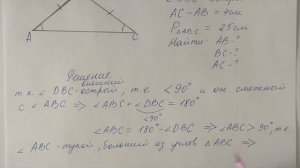 AC - AB = 4см
P△ABC = 25см
Найти: AB - ?
BC - ?
AC - ?
A
C
Решение
внешний
т.к ∠ DBC - острый, т.е < 90° и он смежный
с ∠ ABC ⇒ ∠ABC + ∠DBC = 180°
<90°
∠ABC = 180° - ∠DBC ⇒ ∠ABC > 90°, т.е.
∠ ABC - тупой, больший из углов △ABC ⇒